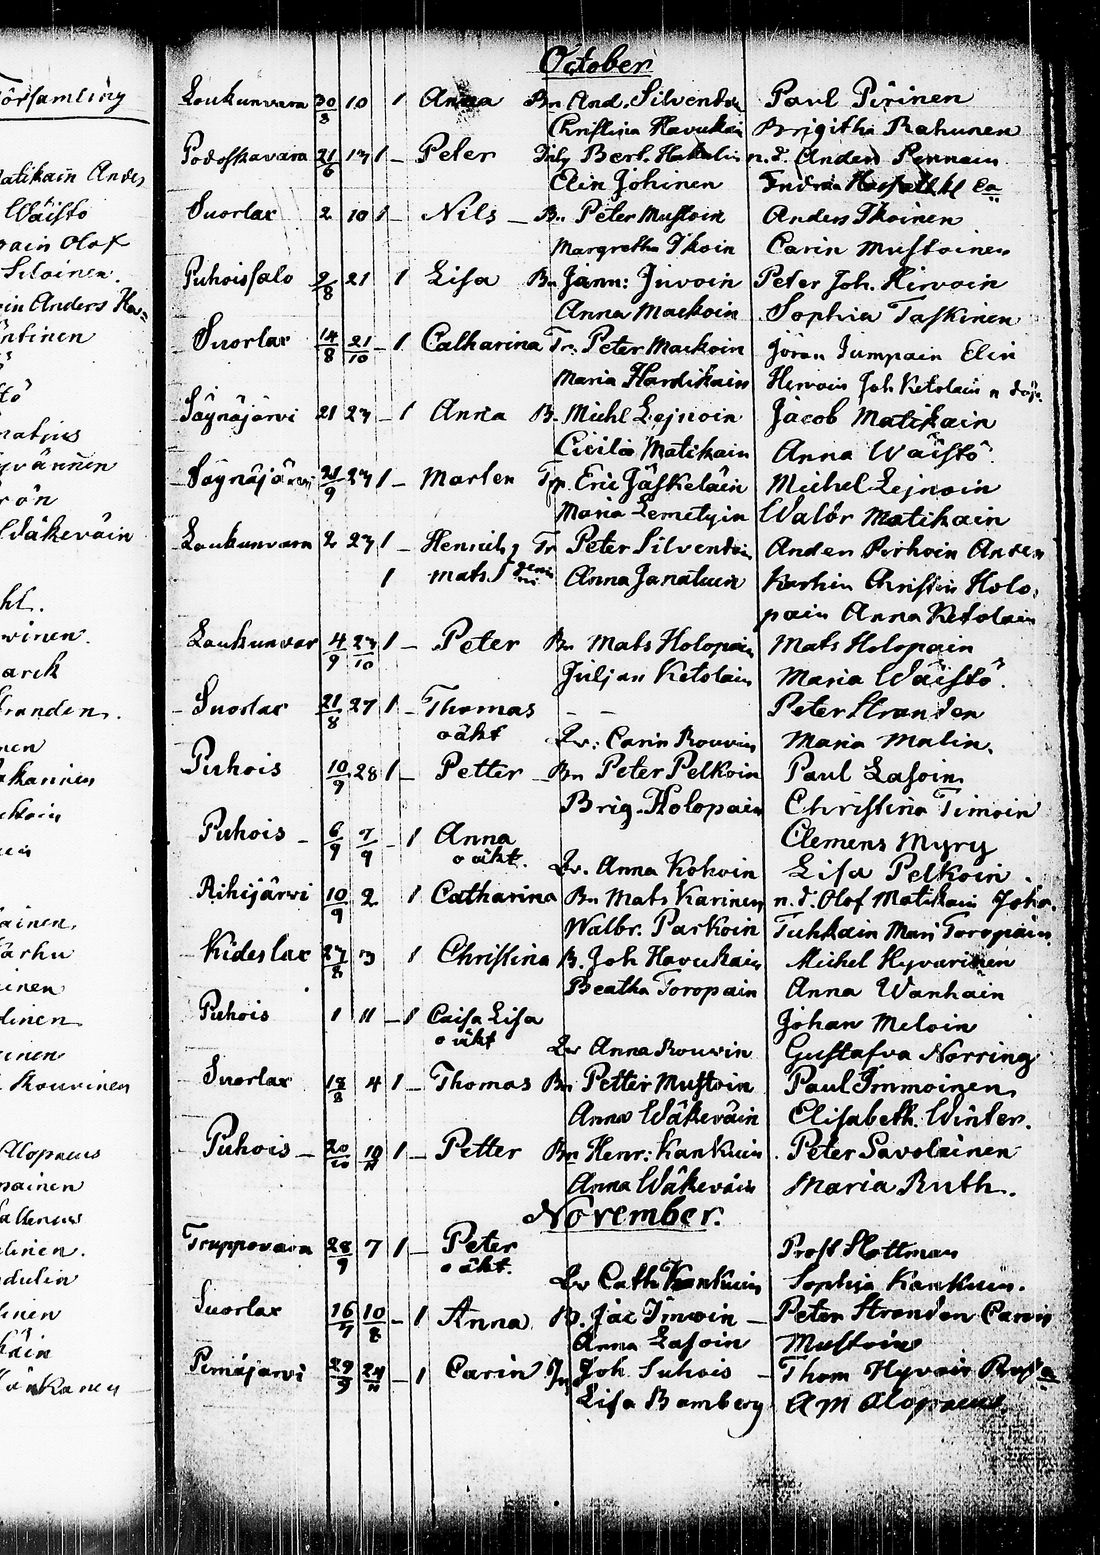 Församling
Matikain Anders
Wäistö
pain Olof
Siloinen.
in Anders Ha=
ntinen
tö
natius
yvännen
rön
Wäkeväin
hl.
winen.
arck
tranden.
nen
akannen
ainen,
Tärhu
inen
linen
inen
Rouvinen
Alopaeus
painen
linen.
dulin
inen
käin
October
Loukunvara 30/8 10 1 Anna Bn And. Silvendoi Paul Pirinen
Christina Havukai Brigitha Rahunen
Podoskavara 21/6 17 1 – Peter Berl. n.d. Anders Pennain
Elin Johinen
Suorlax 2 10 1 – Nils – Bn Peter Mustoin Anders Ikoinen
Margretha Ikoin Carin Mustoinen
Puhoissalo 9/8 21 1 Lisa Bn Jann: Juvoin Peter Joh. Hirvoin
Anna Mackoin Sophia Taskinen
Suorlax 14/8 21/10 – 1 Catharina Tr. Peter Mackoin Jöran Jumpain Elin
Maria Hardikain Hirvoin Joh Ketolain
Säynäjärvi 21 27 – 1 Anna B. Michl Lejnoin Jacob Matikain
Cicilia Matikain Anna Wäistö
Säynäjärvi 21/9 27 1 – Morten Tp. Eric Jäskeläin Michel Lejnoin
Maria Lemetyin Walbr Matikain
Loukunvara 2 27 1 – Henrich Tr Peter Silvendoin Anders Pirhoin Anders
1 mats gemini Anna Janatuin Karhin Christin Holo,
pain Anna Ketolain
Loukunvar 4/9 27/10 1 – Peter Bn Mats Holopain Mats Holopain
Juljan Ketolain Maria Wäistö.
– Suorlax 21/8 27 1 – Thomas – – Peter Stranden
oäkt Qv: Carin Rouvin Maria Malin.
Puhois 10/9 28 1 – Petter – Bn Peter Pelkoin Paul Lasoin
Brig. Holopain Christina Timoin
Puhois – 6/9 7/9 – 1 Anna Clemens Myry
oäkt. Qv. Anna Kokoin Lisa Pelkoin.
Rihijärvi 10/9 2 1 Catharina Bn Mats Karinen n.d. Olof Matikain Joha.
Walbr. Parkoin Tuhkain Mari Toropain
Kideslax 27/8 3 1 Christina B. Joh Havukain Michel Hyvarinen
Beatha Toropain Anna Wanhain
Puhois 1 11 – 1 Caisa Lisa Johan Meloin
oäkt Qv Anna Rouvin Gustafva Norring
Suorlax 18/8 4 1 – Thomas Bn Petter Mustoin Paul Immoinen,
Anna Wäkeväin Elisabeth. Winter.
Puhois – 20/10 10/11 1 – Petter Bn Henr: Kankuin Peter Savolainen
Anna Wäkeväin Maria Ruth.
November.
Truppovara 28/9 7 1 – Peter Prost Hottman
oäkt. Qv Cath Kankuin Sophia Kankuin.
Suorlax 16/7 10/8 – 1 Anna B. Jac Imoin – Peter Stranden Carin
Anna Lasoin Mustoin
Pirnäjärvi 29/9 24/11 – 1 Carin In Joh. Suhois – Thom Hyvoin
Lisa Bamberg AM Alopaeus.